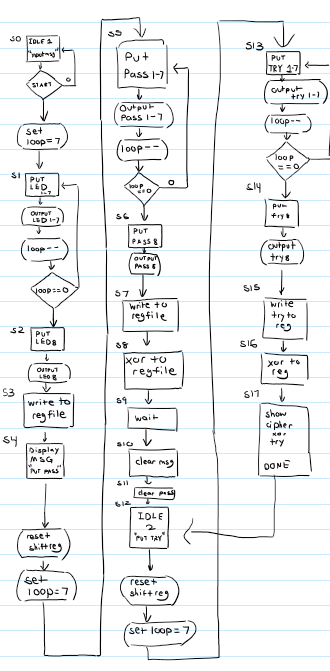 S0
IDLE 1
"input msg"
START
0
set
loop=7
S1
PUT
LED
1-7
OUTPUT
LED 1-7
loop--
loop==0
S2
PUT
LED8
OUTPUT
LED8
S3
write to
regfile
S4
Display
MSG
"PUT PASS"
reset
shiftreg
set
loop=7
S5
Put
Pass 1-7
Output
Pass 1-7
loop--
loop
==0
0
S6
PUT
PASS 8
OUTPUT
PASS 8
S7
write to
regfile
S8
xor to
regfile
S9
wait
S10
clear msg
S11
clear pass
S12
IDLE
2
"PUT TRY"
reset
shiftreg
set loop=7
S13
PUT
TRY 1-7
output
try 1-7
loop--
loop
==0
S14
put
try 8
output
try 8
S15
write
try to
reg
S16
xor to
reg
S17
show
cipher
xor
try
DONE